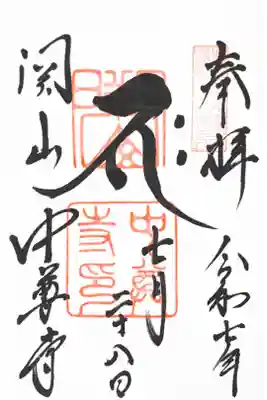 奉拝
令和七年
七月二十八日
関山
中尊寺
中尊寺印